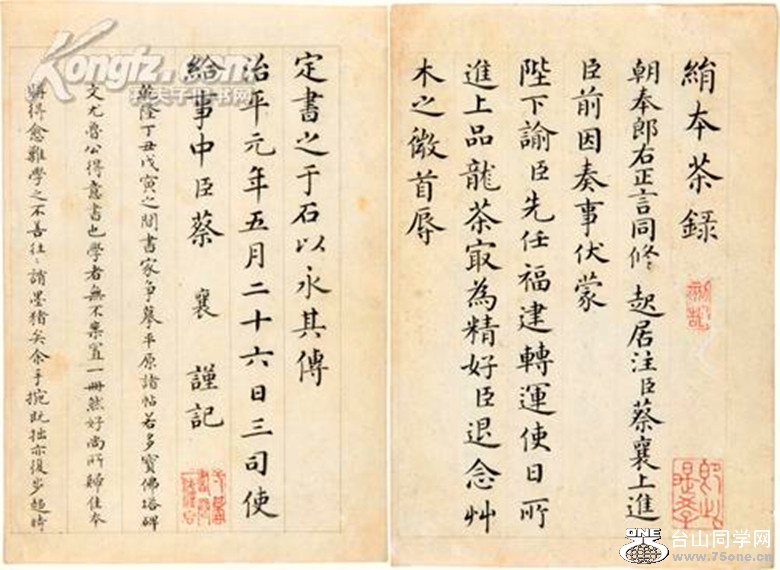 絹本茶錄
朝奉郎右正言同修起居注臣蔡襄上進
臣前因奏事伏蒙
陛下諭臣先任福建轉運使日所
進上品龍茶冣為精好臣退念艸
木之微首辱
定書之于石以永其傳
治平元年五月二十六日三司使
給事中臣蔡襄謹記
乾隆丁丑戊寅之間書家爭摹平原諸帖若多寶佛塔碑
文尤魯公得意書也學者無不案置一冊然好尚所歸佳本
購得愈難學之不善往：誚墨猪矣余手捥既拙亦復少趨時
Kongfz.com
孔夫子旧书网
ONE
台山同学网
www.75one.cn